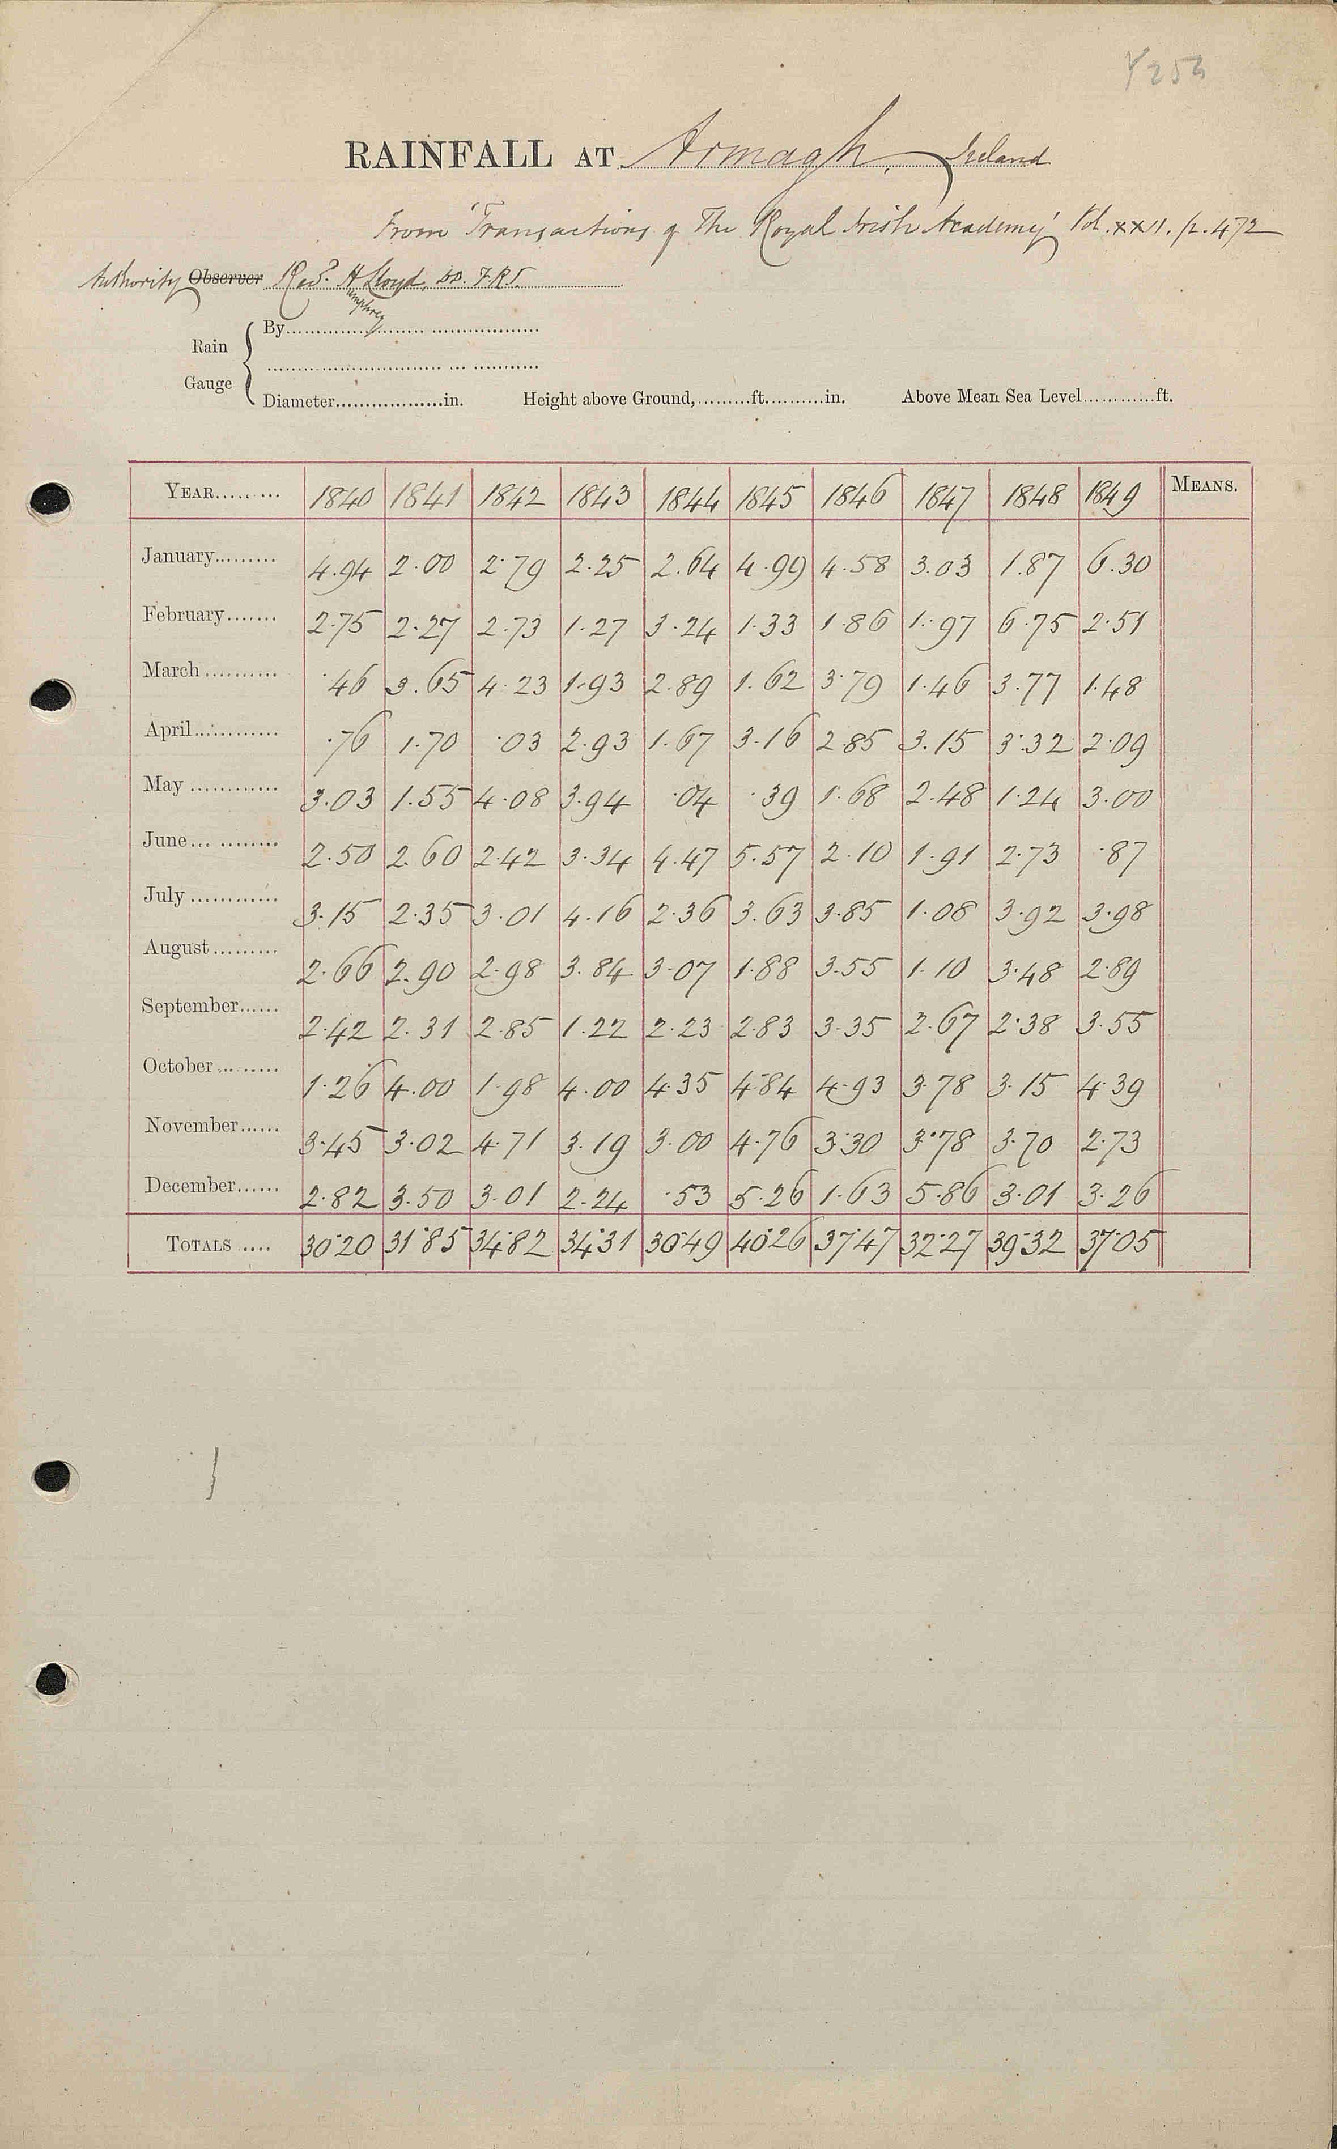 Y253
RAINFALL AT Armagh, Ireland
From 'Transactions of The Royal Irish Academy' Vol. XXII. p. 472
Authority Observer Revd. H Lloyd, DD. F.R.S.
umphrey
Rain Gauge
By
Diameter in. Height above Ground, ft. in. Above Mean Sea Level ft.
YEAR 1840 1841 1842 1843 1844 1845 1846 1847 1848 1849 MEANS.
January 4.94 2.00 2.79 2.25 2.64 4.99 4.58 3.03 1.87 6.30
February 2.75 2.27 2.73 1.27 3.24 1.33 1.86 1.97 6.75 2.51
March .46 3.65 4.23 1.93 2.89 1.62 3.79 1.46 3.77 1.48
April .76 1.70 .03 2.93 1.67 3.16 2.85 3.15 3.32 2.09
May 3.03 1.55 4.08 3.94 .04 .39 1.68 2.48 1.24 3.00
June 2.50 2.60 2.42 3.34 4.47 5.57 2.10 1.91 2.73 .87
July 3.15 2.35 3.01 4.16 2.36 3.63 3.85 1.08 3.92 3.98
August 2.66 2.90 2.98 3.84 3.07 1.88 3.55 1.10 3.48 2.89
September 2.42 2.31 2.85 1.22 2.23 2.83 3.35 2.67 2.38 3.55
October 1.26 4.00 1.98 4.00 4.35 4.84 4.93 3.78 3.15 4.39
November 3.45 3.02 4.71 3.19 3.00 4.76 3.30 3.78 3.70 2.73
December 2.82 3.50 3.01 2.24 .53 5.26 1.63 5.86 3.01 3.26
TOTALS 30.20 31.85 34.82 34.31 30.49 40.26 37.47 32.27 39.32 37.05